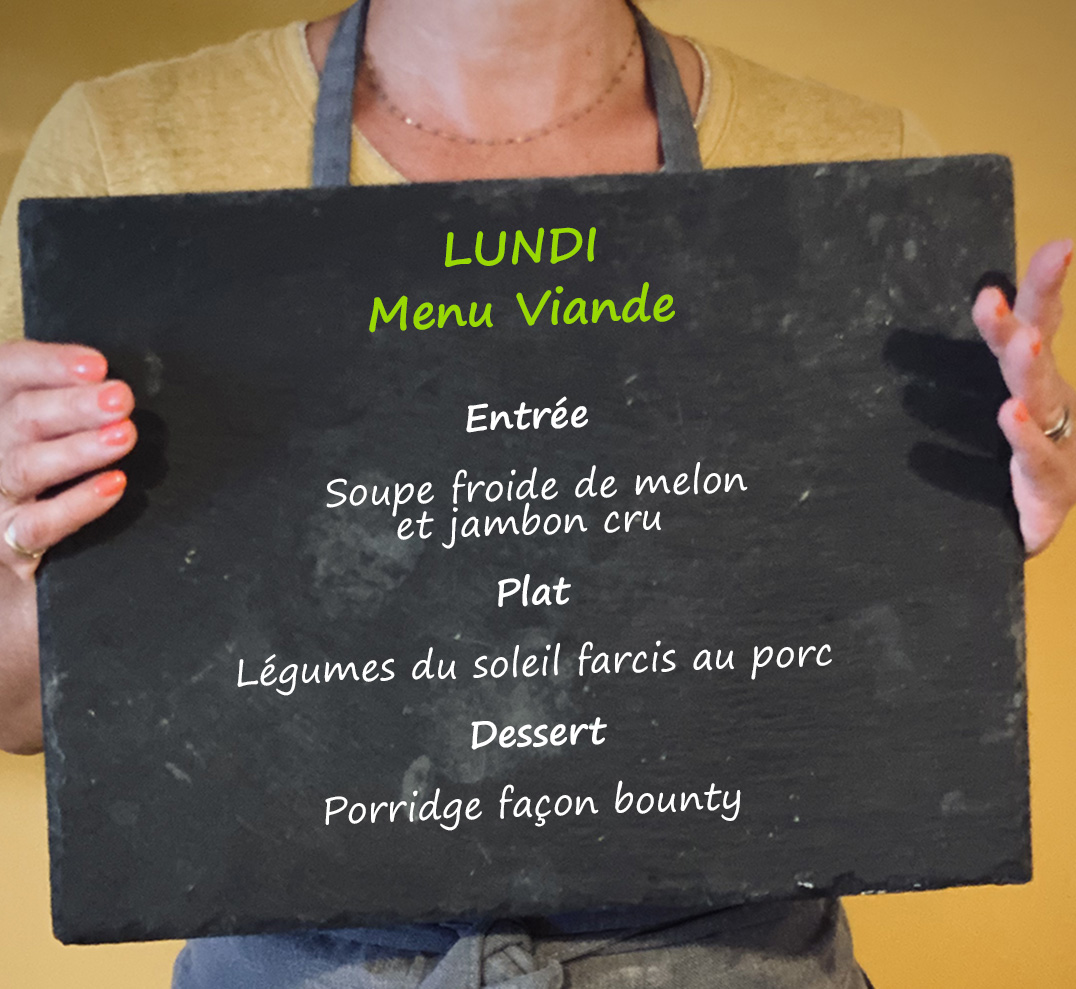 LUNDI
Menu Viande
Entrée
Soupe froide de melon
et jambon cru
Plat
Légumes du soleil farcis au porc
Dessert
Porridge façon bounty